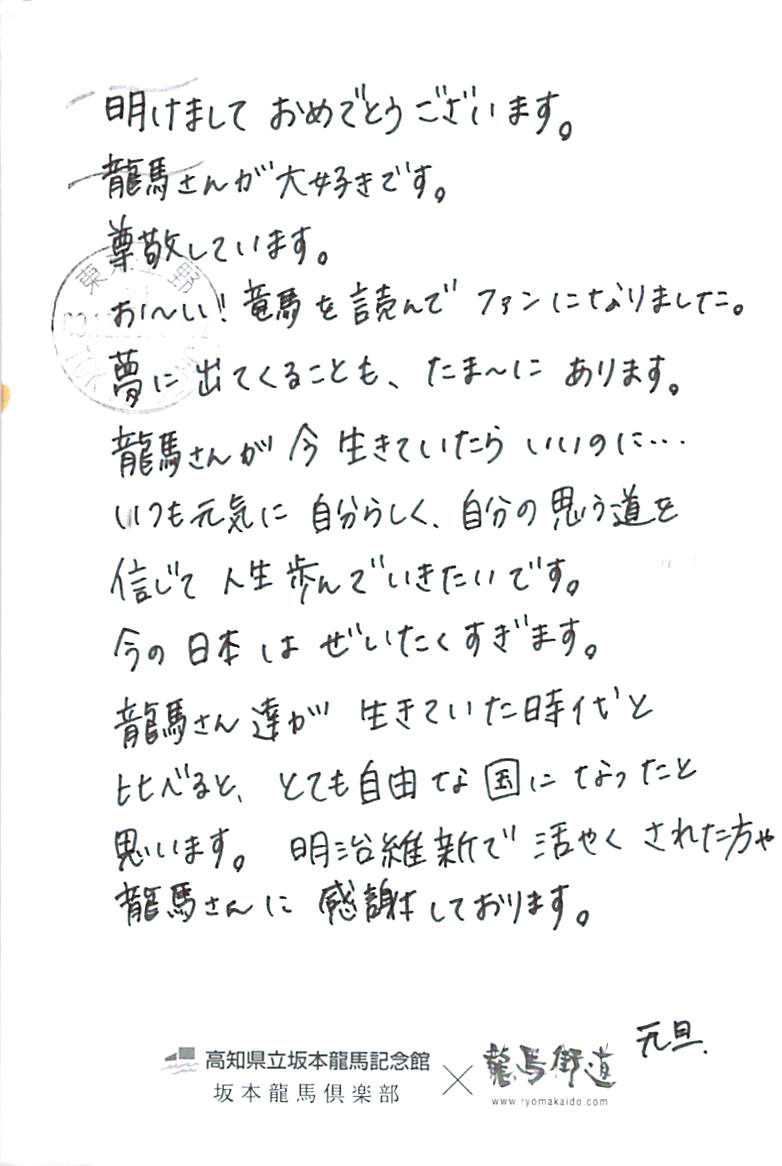 明けまして おめでとうございます。
龍馬さんが大好きです。
尊敬しています。
お〜い!竜馬を読んで ファンになりました。
夢に出てくることも、たま〜に あります。
龍馬さんが 今 生きていたら いいのに…
いつも元気に 自分らしく、自分の思う道を
信じて 人生歩んでいきたいです。
今の日本は ぜいたくすぎます。
龍馬さん達が 生きていた時代と
比べると、とても自由な国になったと
思います。 明治維新で 活やく された方や
龍馬さんに 感謝しております。
元旦.
高知県立坂本龍馬記念館
坂本龍馬倶楽部
×
龍馬街道
www.ryomakaido.com